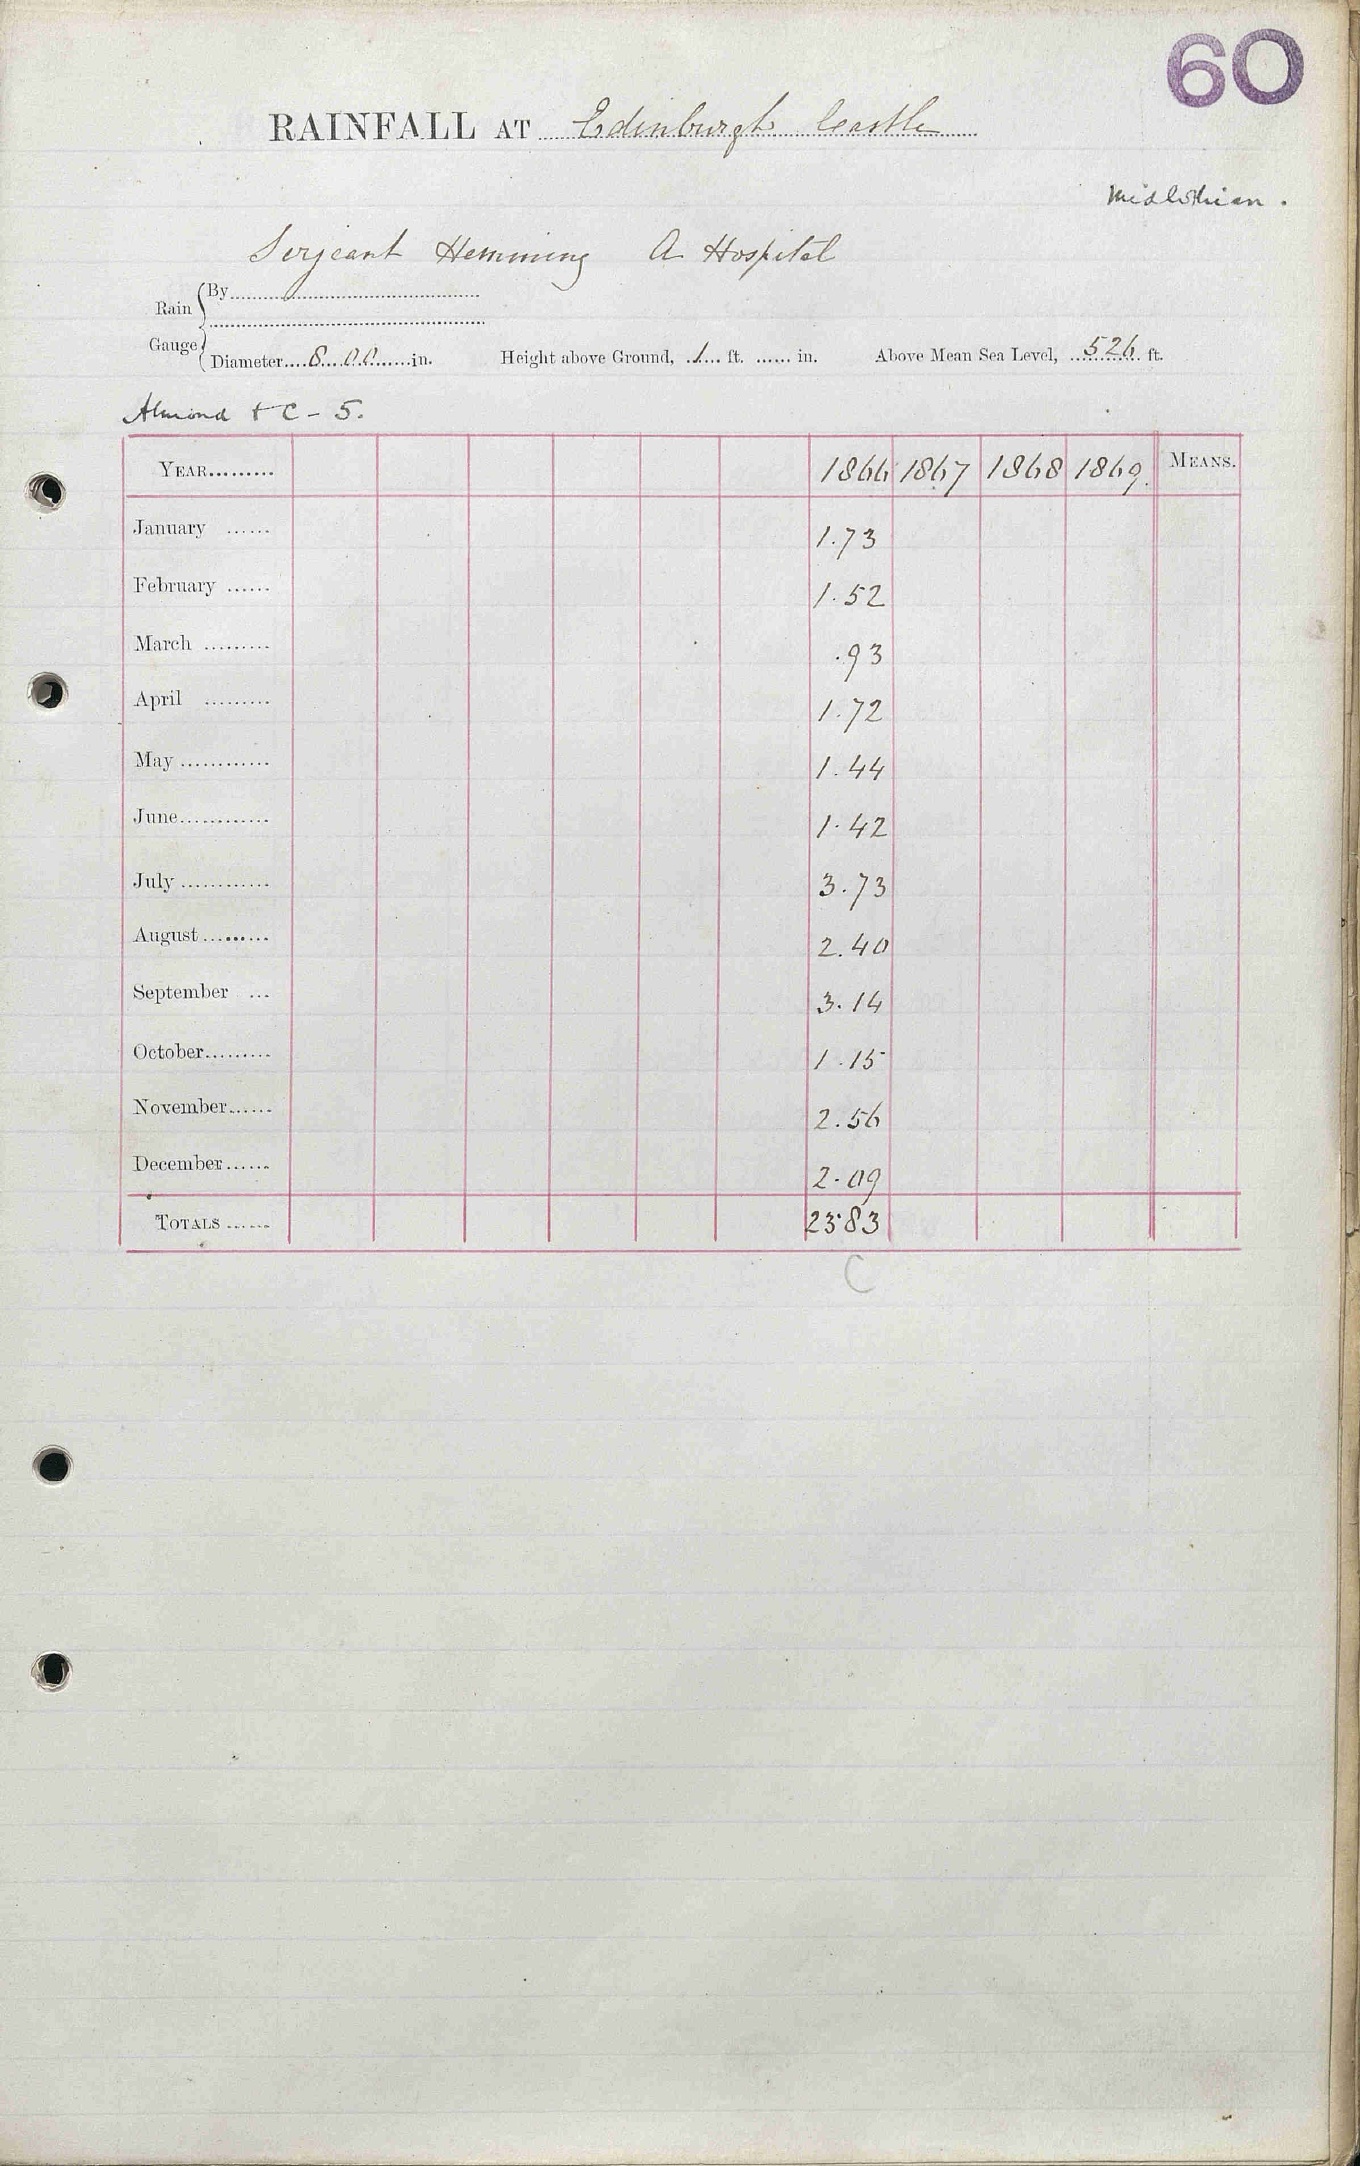 60
RAINFALL AT Edinburgh Castle
Midlothian.
Serjeant Hemming A Hospital
Rain Gauge { By
Diameter 8.00 in. Height above Ground, 1 ft. in. Above Mean Sea Level, 526 ft.
Almond & C - 5.
YEAR 1866 1867 1868 1869. MEANS.
January 1.73
February 1.52
March .93
April 1.72
May 1.44
June 1.42
July 3.73
August 2.40
September 3.14
October 1.15
November 2.56
December 2.09
TOTALS 23.83
C